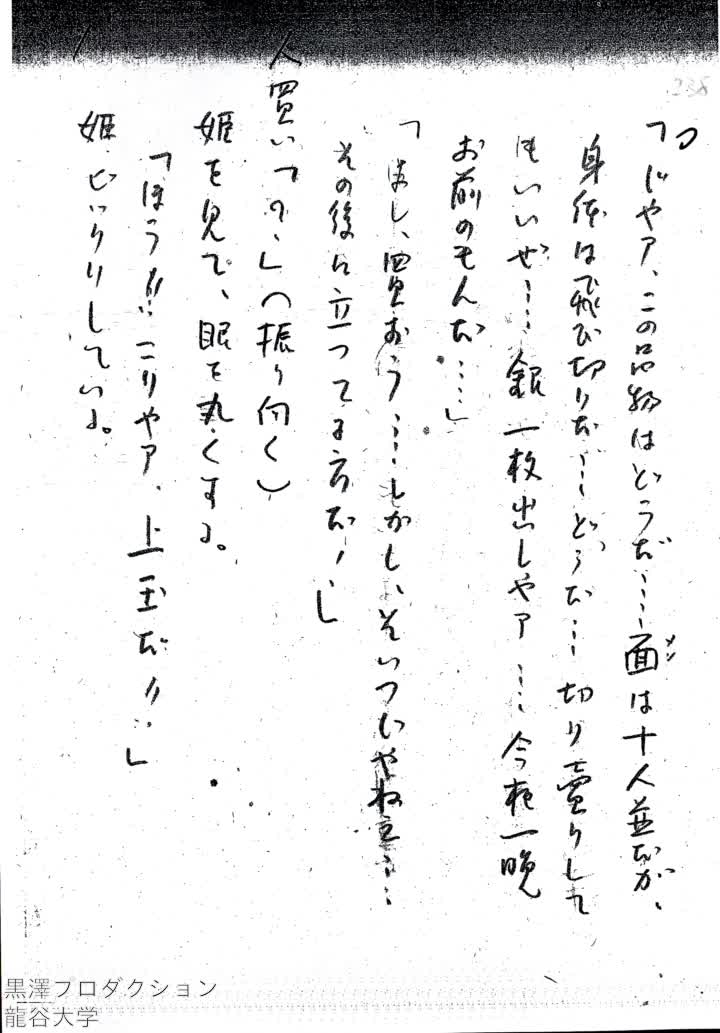 238
「じゃア、この品物はどうだ……面は十人並だが、
メン
身体は飛び切りだ……どうだ……切り売りして
もいいぜ……銀一枚出しゃア……今夜一晩
お前のもんだ……」
「よし、買おう……しかし、そいつじゃねえ……
その後に立ってる方だ！」
人買い「？」(振り向く)
姫を見て、眼を丸くする。
「ほう!! こりゃア、上玉だ!!」
姫、じりりしている。
黒澤プロダクション
龍谷大学